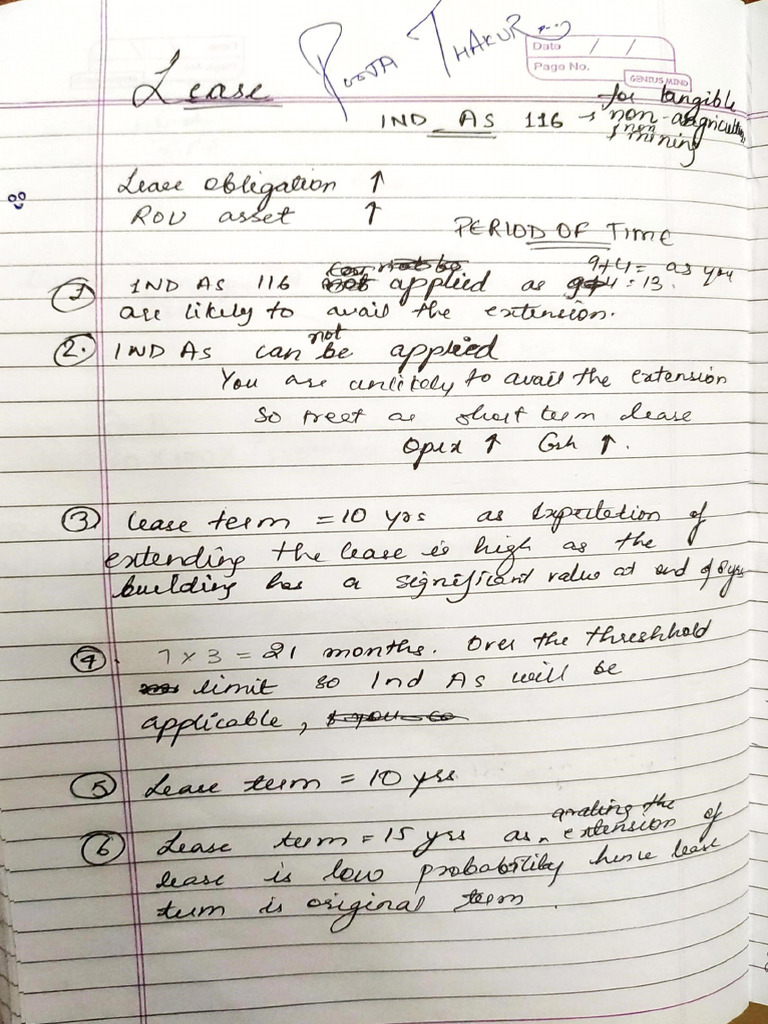 POOJA THAKUR
Data / /
Page No.
GENIUS MIND
Lease
for tangible
IND AS 116 → non-agricultu
non mining
Lease obligation ↑
ROU asset ↑
PERIOD OF Time
① IND AS 116 applied as 9+4 = 13. as you
are likely to avail the extension.
②. IND AS can not be applied
You are unlikely to avail the extension
So treat as short term lease
Opex ↑ Csh ↑.
③ lease term = 10 yrs as Expectation of
extending the lease is high as the
building has a significant value at end of 8 yrs
④. 7 x 3 = 21 months. Over the threshhold
limit so Ind AS will be
applicable,
⑤ Lease term = 10 yrs
⑥ Lease term = 15 yrs as extension of
lease is low probability hence lease
term is original term.